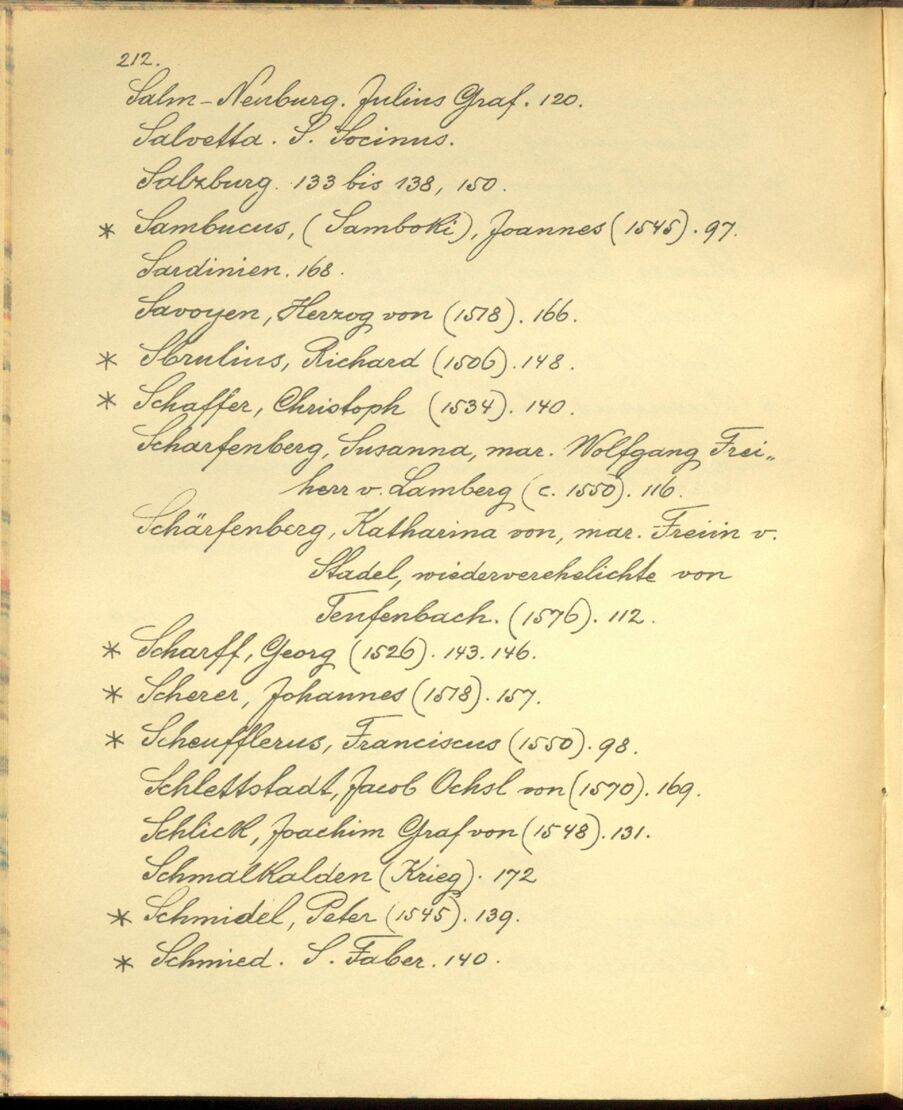 212.
Salm-Neuburg. Julius Graf. 120.
Salvetta. S. Socinus.
Salzburg. 133 bis 138, 150.
* Sambucus, (Samboki), Joannes (1545). 97.
Sardinien. 168.
Savoyen, Herzog von (1578). 166.
* Sbrulius, Richard (1506). 148.
* Schaffer, Christoph (1534). 140.
Scharfenberg, Susanna, mar. Wolfgang Frei„
herr v. Lamberg (c. 1550). 116.
Schärfenberg, Katharina von, mar. Freiin v.
Stadel, wiederverehelichte von
Teufenbach. (1576). 112.
* Scharff, Georg (1526). 143. 146.
* Scherer, Johannes (1578). 157.
* Scheufflerus, Franciscus (1550). 98.
Schlettstadt, Jacob Ochsl von (1570). 169.
Schlick, Joachim Graf von (1548). 131.
Schmalkalden (Krieg). 172
* Schmidel, Peter (1545). 139.
* Schmied. S. Faber. 140.